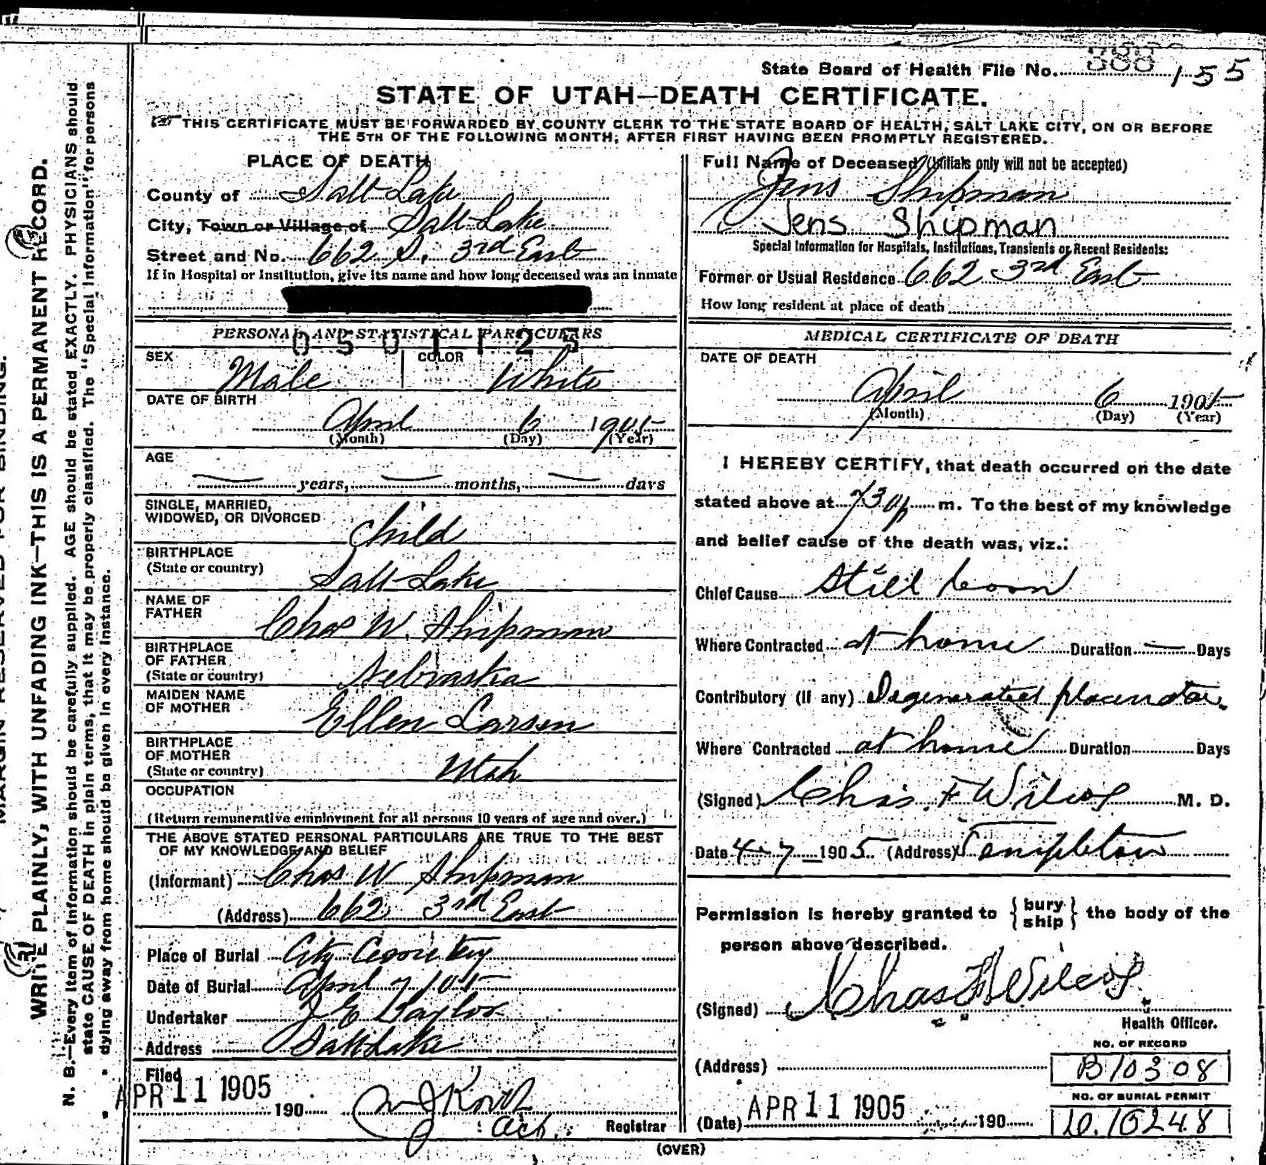 State Board of Health File No. 388 155
STATE OF UTAH—DEATH CERTIFICATE.
THIS CERTIFICATE MUST BE FORWARDED BY COUNTY CLERK TO THE STATE BOARD OF HEALTH, SALT LAKE CITY, ON OR BEFORE
THE 5TH OF THE FOLLOWING MONTH, AFTER FIRST HAVING BEEN PROMPTLY REGISTERED.
PLACE OF DEATH
County of Salt Lake
City, Town or Village of Salt Lake
Street and No. 662 S. 3rd East
If in Hospital or Institution, give its name and how long deceased was an inmate
PERSONAL AND STATISTICAL PARTICULARS
0501125
SEX Male COLOR White
DATE OF BIRTH
April 6 1905
(Month) (Day) (Year)
AGE
years, months, days
SINGLE, MARRIED,
WIDOWED, OR DIVORCED Child
BIRTHPLACE
(State or country) Salt Lake
NAME OF
FATHER Chas W. Shipman
BIRTHPLACE
OF FATHER
(State or country) Nebraska
MAIDEN NAME
OF MOTHER Ellen Larsen
BIRTHPLACE
OF MOTHER
(State or country) Utah
OCCUPATION
(Return remunerative employment for all persons 10 years of age and over.)
THE ABOVE STATED PERSONAL PARTICULARS ARE TRUE TO THE BEST
OF MY KNOWLEDGE AND BELIEF
(Informant) Chas W Shipman
(Address) 662 3rd East
Place of Burial City Cemetery
Date of Burial April 7 / 05
Undertaker J E Taylor
Address Salt Lake
Filed
APR 11 1905 190
Act. Registrar
Full Name of Deceased (Initials only will not be accepted)
Jens Shipman
Jens Shipman
Special Information for Hospitals, Institutions, Transients or Recent Residents:
Former or Usual Residence 662 3rd East
How long resident at place of death
MEDICAL CERTIFICATE OF DEATH
DATE OF DEATH
April 6 1905
(Month) (Day) (Year)
I HEREBY CERTIFY, that death occurred on the date
stated above at 730 p m. To the best of my knowledge
and belief cause of the death was, viz.:
Chief Cause Still born
Where Contracted at home Duration — Days
Contributory (if any) Degenerated placenta.
Where Contracted at home Duration Days
(Signed) Chas. F Wilcox M. D.
Date 4-7-1905 (Address) Templeton
Permission is hereby granted to {bury ship} the body of the
person above described.
(Signed) Chas F Wilcox
Health Officer.
(Address)
NO. OF RECORD
B10308
NO. OF BURIAL PERMIT
D.16248
(Date) APR 11 1905 190
(OVER)
WRITE PLAINLY, WITH UNFADING INK—THIS IS A PERMANENT RECORD.
N. B.—Every item of information should be carefully supplied. AGE should be stated EXACTLY. PHYSICIANS should
state CAUSE OF DEATH in plain terms, that it may be properly classified. The "Special Information" for persons
dying away from home should be given in every instance.